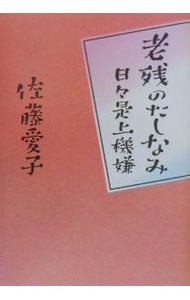 老残のたしなみ
日々是上機嫌
佐藤愛子